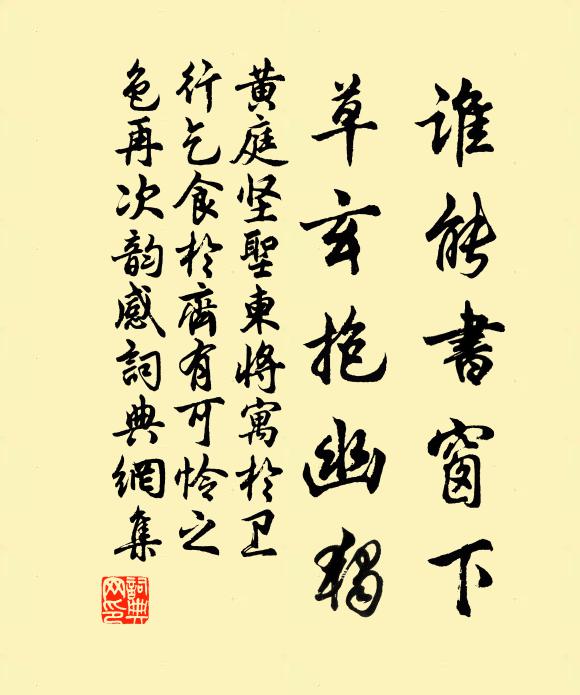 谁能書窗下
草玄抱幽獨
黄庭坚聖東将寓於卫
行乞食於齊有可怜之
色再次韵感詞典網集
詞典网印